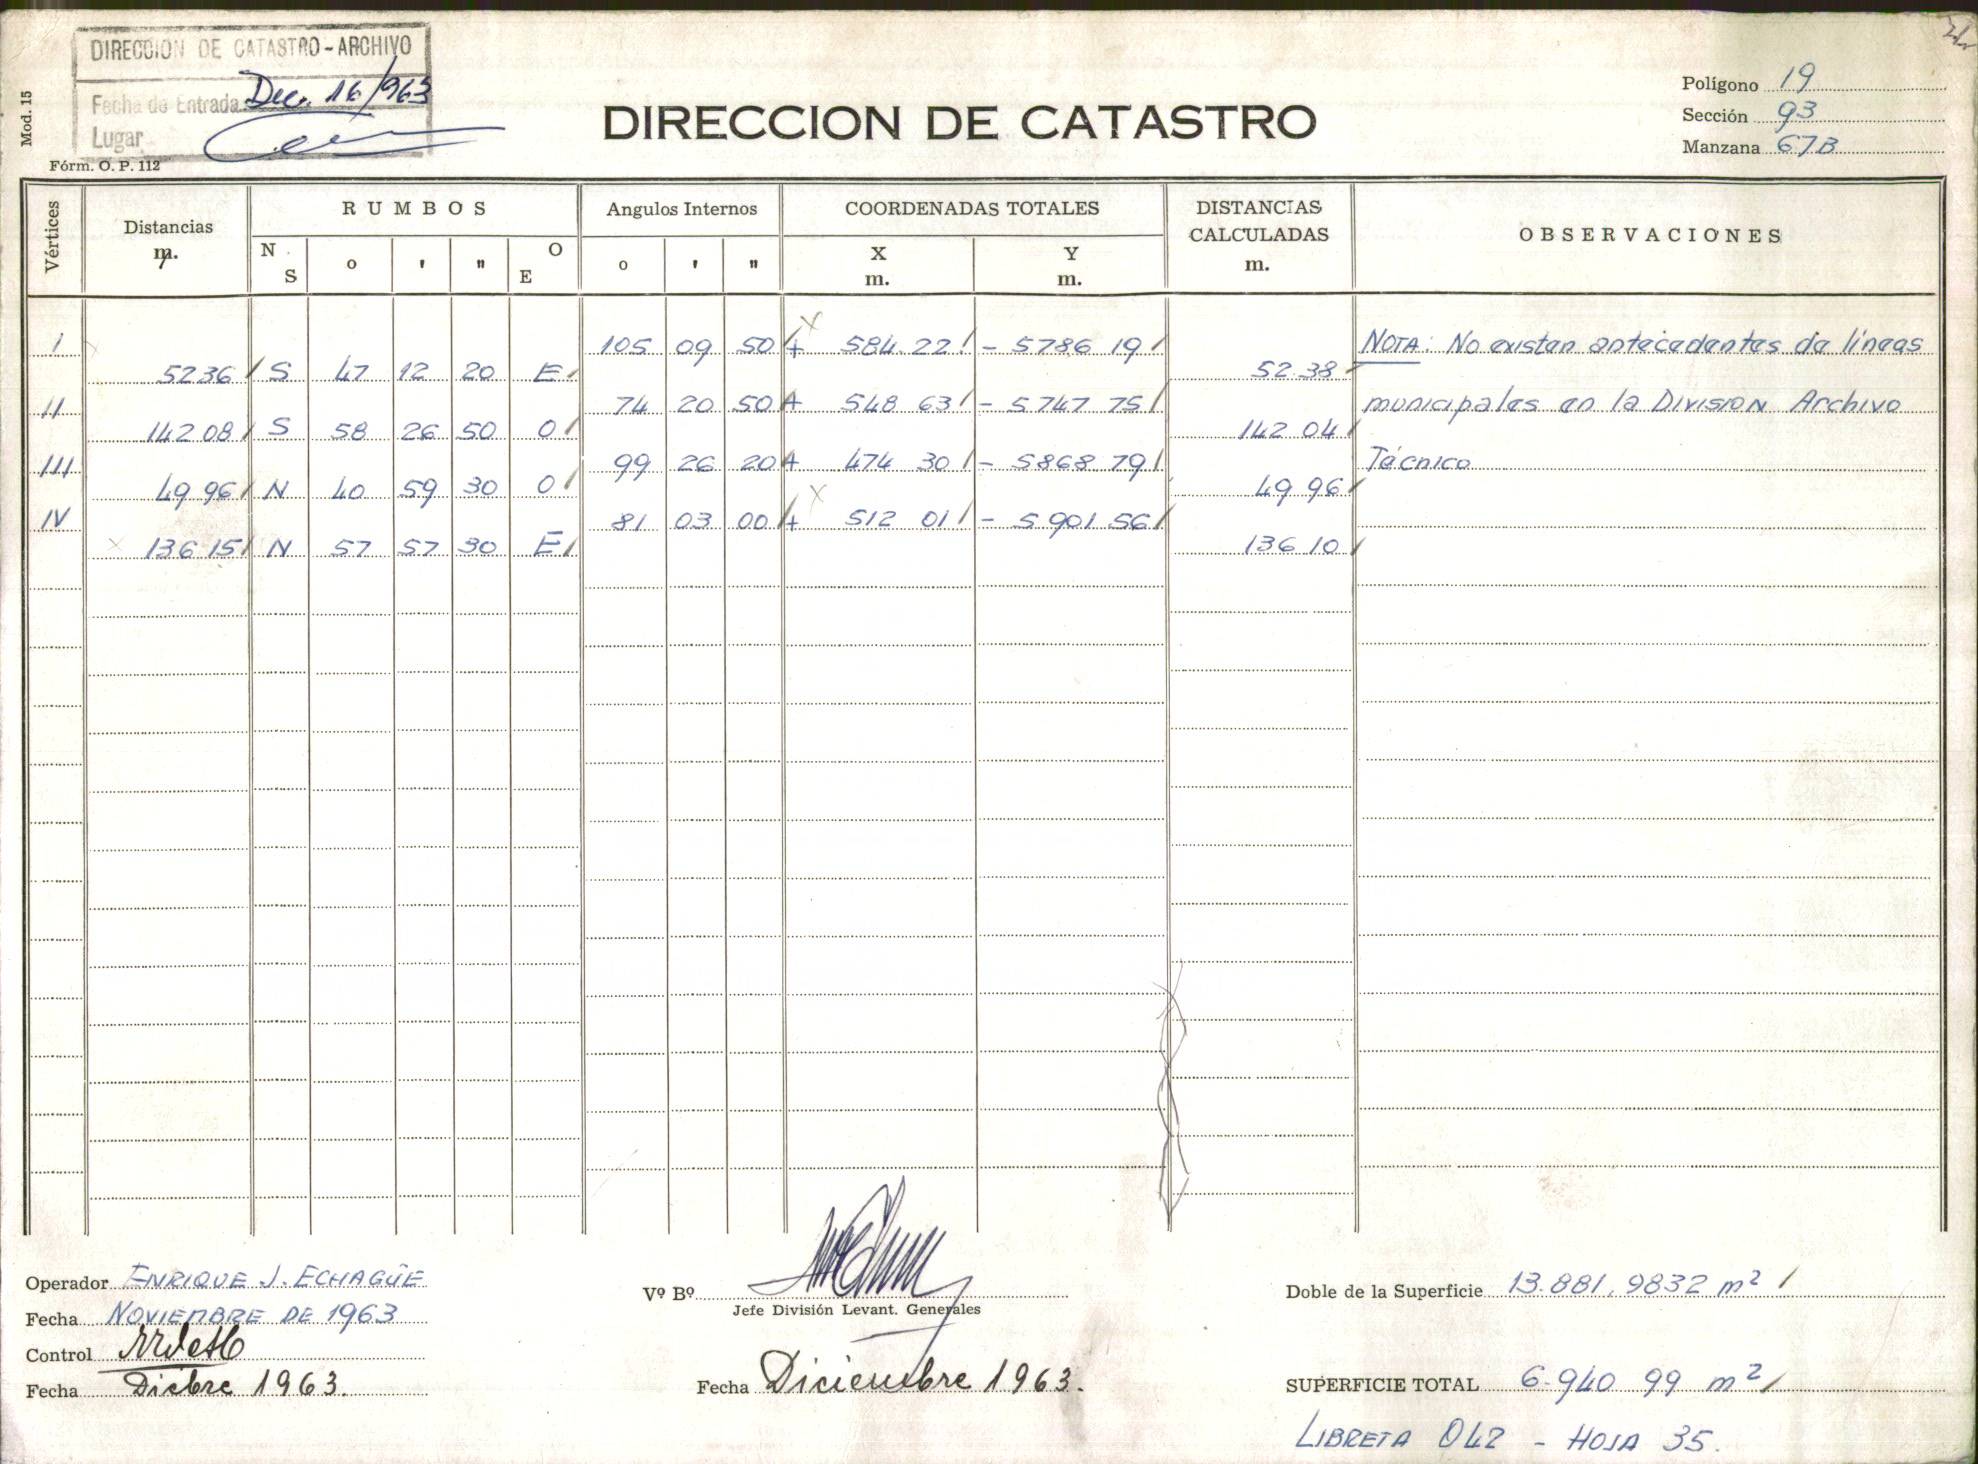 DIRECCION DE CATASTRO - ARCHIVO
Fecha de Entrada Dec. 16/963
Lugar
Mod. 15
Fórm. O. P. 112
DIRECCION DE CATASTRO
Polígono 19
Sección 93
Manzana 67B
Vértices
Distancias
m.
RUMBOS
N S
o ' "
O E
Angulos Internos
o ' "
COORDENADAS TOTALES
X m.
Y m.
DISTANCIAS CALCULADAS
m.
OBSERVACIONES
I 105 09 50 + 584 22 - 5786 19 NOTA: No existen antecedentes de líneas
52 36 S 47 12 20 E 52 38
II 74 20 50 + 548 63 - 5747 75 municipales en la DIVISION Archivo
142 08 S 58 26 50 O 142 04
III 99 26 20 + 474 30 - 5868 79 Técnico
49 96 N 40 59 30 O 49 96
IV 81 03 00 + 512 01 - 5901 56
136 15 N 57 57 30 E 136 10
Operador ENRIQUE J. ECHAGÜE
Fecha NOVIEMBRE DE 1963
Control
Fecha Dicbre 1963.
Vº Bº
Jefe División Levant. Generales
Fecha Diciembre 1963.
Doble de la Superficie 13.881,9832 m²
SUPERFICIE TOTAL 6.940 99 m²
LIBRETA 042 - HOJA 35.